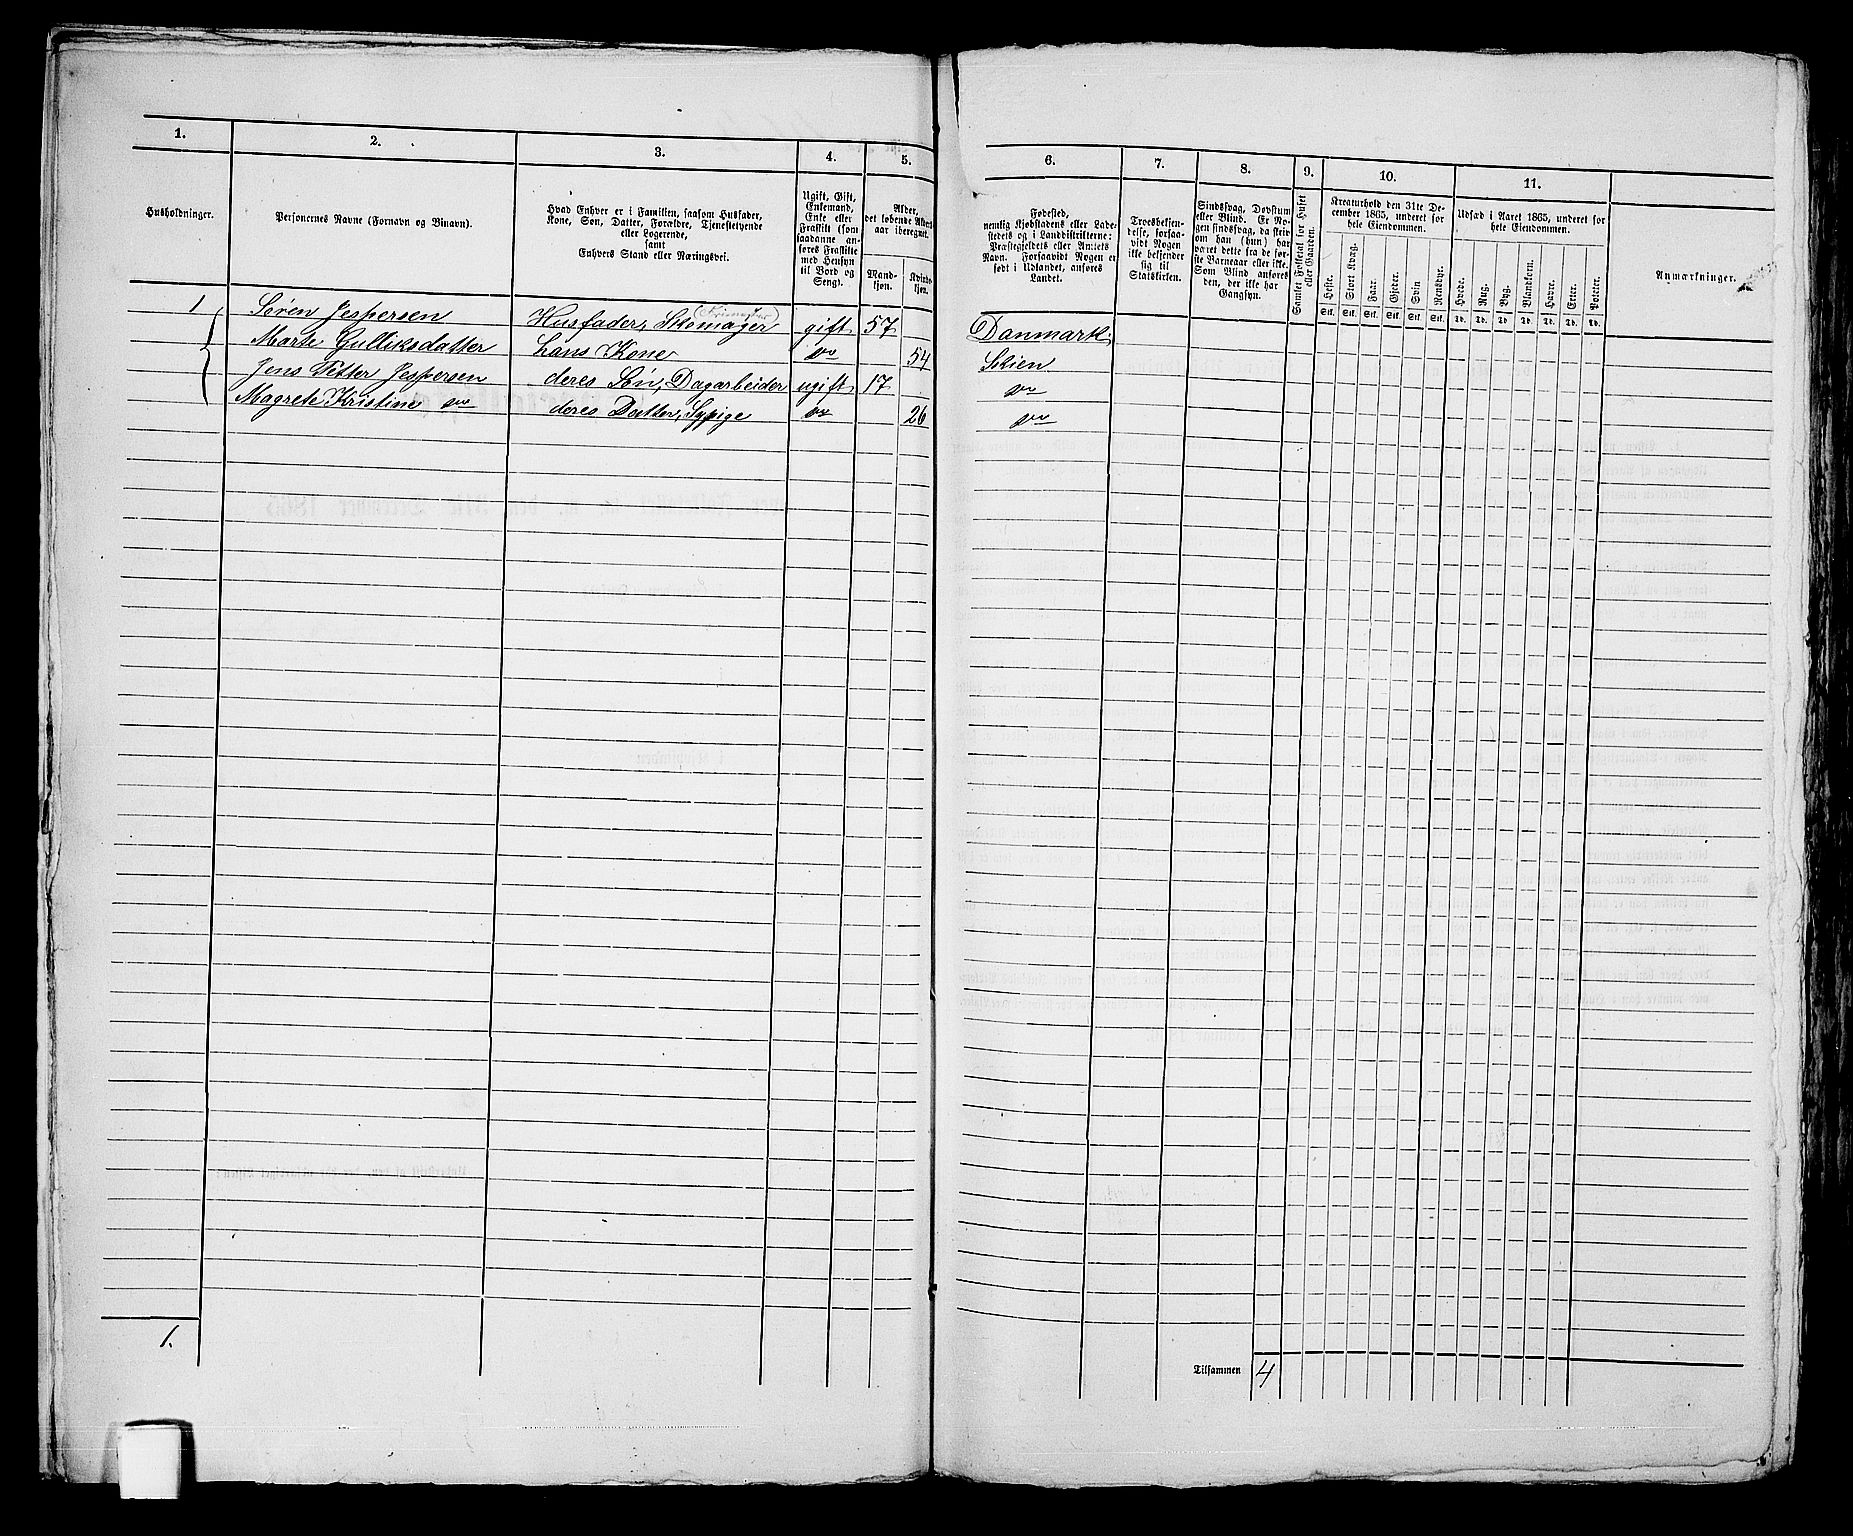 1.
2.
3.
4.
5.
6.
7.
8.
9.
10.
11.
Husholdninger.
Personernes Navne (Fornavn og Binavn).
Hvad Enhver er i Familien, saasom Husfader,
Kone, Søn, Datter, Forældre, Tjenestetyende
eller Logerende,
samt
Enhvers Stand eller Næringsvei.
Ugift, Gift,
Enkemand,
Enke eller
Fraskilt (som
saadanne an-
føres Fraskilte
med Hensyn
til Bord og
Seng).
Alder,
det løbende Alders-
aar iberegnet.
Mand-
kjøn.
Kvinde-
kjøn.
Fødested,
nemlig Kjøbstadens eller Lade-
stedets og i Landdistrikterne:
Præstegjeldets eller Annexets
Navn. Forsaavidt Nogen er
født i Udlandet, anføres
Landet.
Troesbekjen-
delse, forsaa-
vidt Nogen
ikke bekjender
sig til
Statskirken.
Sindssvag, Døvstum
eller Blind. Er No-
gen sindssvag, da skriv
om han (hun) har
været dette fra de før-
ste Barneaar eller ikke.
Som Blind anføres
den, der ikke har
Gangsyn.
Samlet Folketal for Huset
eller Gaarden.
Kreaturhold den 31te De-
cember 1865, underet for
hele Eiendommen.
Heste.
Stort Kvæg.
Faar.
Gjeder.
Svin
Rensdyr.
Stk. Stk. Stk. Stk. Stk. Stk.
Udsæd i Aaret 1865, underet for
hele Eiendommen.
Hvede.
Rug.
Byg.
Blandkorn.
Havre.
Erter.
Poteter.
Td. Td. Td. Td. Td. Td. Td.
Anmærkninger.
1 Søren Jespersen Husfader, Skomager gift 57 Danmark
Marte Gulliksdatter hans Kone do 54 Skien
Jens Petter Jespersen deres Søn, Dagarbeider ugift 17 do
Magrete Kristine do deres Datter, Sypige do 26 do
1.
Tilsammen 4